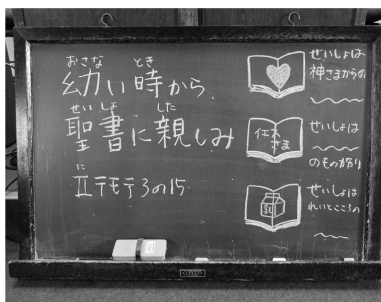 おさな とき
幼い時から
せいしょ した
聖書に親しみ
に
Ⅱテモテ3の15
せいしょは
神さまからの
イエスさま
せいしょは
のもの語り
乳
せいしょは
れいとこころの